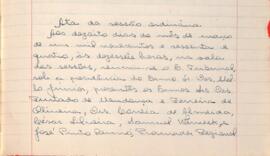 Ata da sessão ordinária
Aos dezoito dias do mês de março
de um mil novecentos e sessenta e
quatro, às dezesseis horas, na sala
das sessões, reuniu-se o E. Tribunal,
sob a presidência do Exmo Sr. Des.
Júnior, presentes os Exmos Srs. Des.
Furtado de Mendonça e Ferreira de
Oliveira, Drs. Corrêa de Almeida,
César Silveira, Samuel
José Pinto Procurador Regional